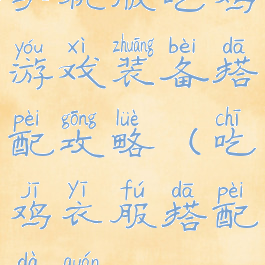 yóu xì zhuāng bèi dā
游戏装备搭
pèi gōng lüè chī
配攻略（吃
jī yī fú dā pèi
鸡衣服搭配